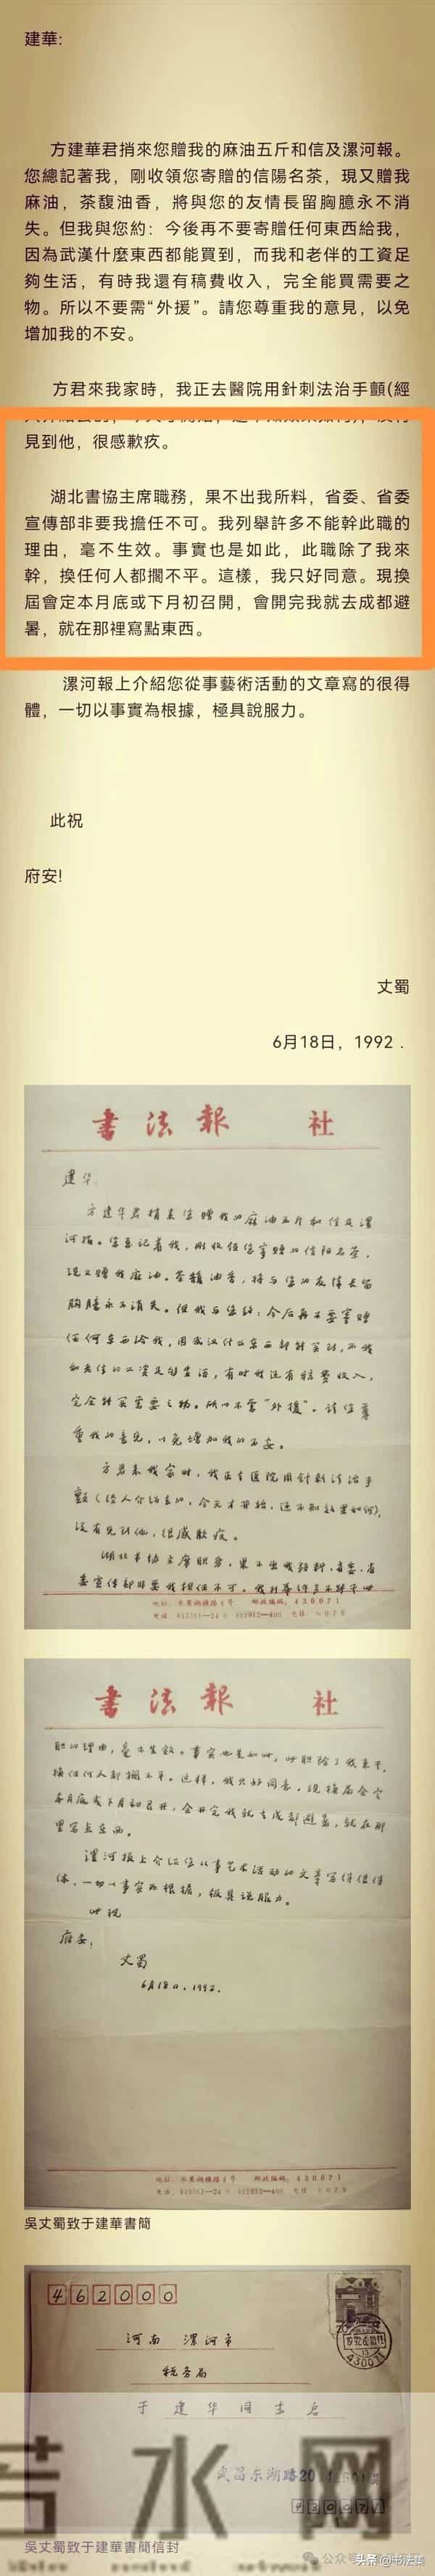 建華:
方建華君捎來您贈我的麻油五斤和信及漯河報。
您總記著我，剛收領您寄贈的信陽名茶，現又贈我
麻油，茶馥油香，將與您的友情長留胸臆永不消
失。但我與您約：今後再不要寄贈任何東西給我，
因為武漢什麼東西都能買到，而我和老伴的工資足
夠生活，有時我還有稿費收入，完全能買需要之
物。所以不要需“外援”。請您尊重我的意見，以免
增加我的不安。
方君來我家時，我正去醫院用針刺法治手顫(經
見到他，很感歉疚。
湖北書協主席職務，果不出我所料，省委、省委
宣傳部非要我擔任不可。我列舉許多不能幹此職的
理由，毫不生效。事實也是如此，此職除了我來
幹，換任何人都擱不平。這樣，我只好同意。現換
屆會定本月底或下月初召開，會開完我就去成都避
暑，就在那裡寫點東西。
漯河報上介紹您從事藝術活動的文章寫的很得
體，一切以事實為根據，極具說服力。
此祝
府安!
丈蜀
6月18日，1992 .
書法報 社
建华:
方建华君捎来您赠我的麻油五斤和信及漯
河报。您总记着我，刚收领您寄赠的信阳名茶，
现又赠我麻油。茶馥油香，将与您的友情长留
胸臆永不消失。但我与您约：今后再不要寄赠
任何东西给我，因武汉什么东西都能买到，而我
和老伴的工资足够生活，有时我还有稿费收入，
完全能买需要之物。所以不需“外援”。请您尊
重我的意见，以免增加我的不安。
方君来我家时，我正去医院用针刺法治手
颤(经人介绍去的，今天才开始，还不知效果如何)，
没有见到他，很感歉疚。
湖北书协主席职务，果不出我所料，省委、省
委宣传部非要我担任不可。我列举许多不能干此
地址：水果湖横路4号 邮政编码：430071
書法報 社
职的理由，毫不生效。事实也是如此，此职除了我来干，
换任何人都搁不平。这样，我只好同意。现换届会定
本月底或下月初召开，会开完我就去成都避暑，就在那
里写点东西。
漯河报上介绍您从事艺术活动的文章写得很得
体，一切以事实为根据，极具说服力。
此祝
府安!
丈蜀
6月18日，1992.
地址：水果湖横路4号 邮政编码：430071
吳丈蜀致于建華書簡
462000
河南 漯河市
税务局
于建华同志启
武昌东湖路20
430071
水网
吳丈蜀致于建華書簡信封
公众号
头条@书法集